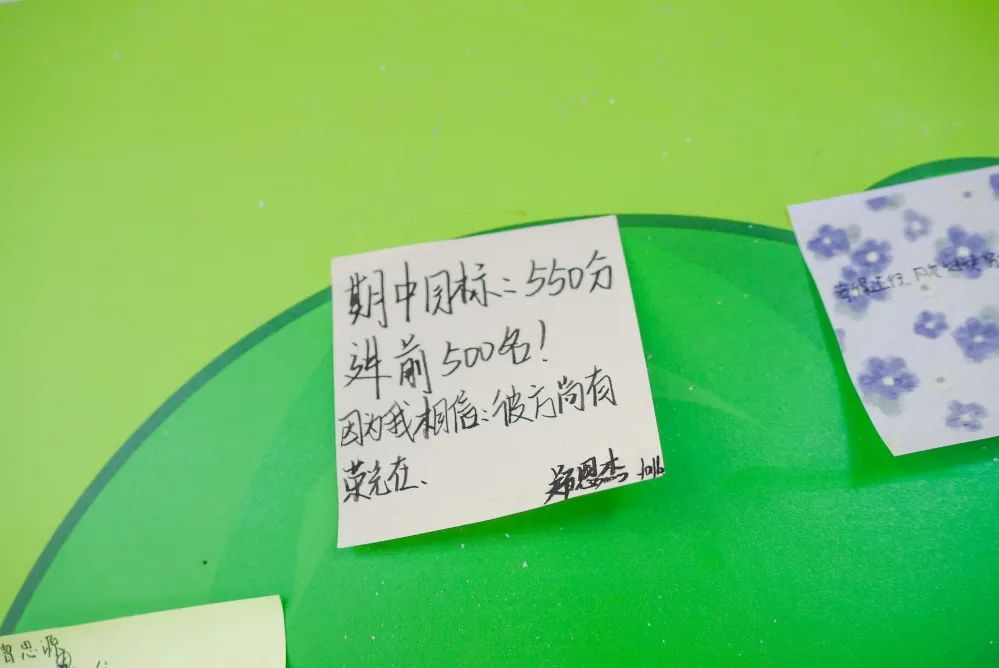 期中目标：550分
进前500名！
因为我相信：彼方尚有
荣光在、
郑恩杰 1016
曾思源